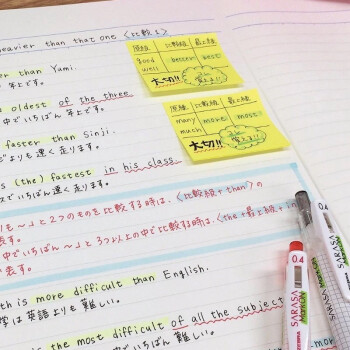 heavier than that one 〈比較1〉
er than Yumi.
年上です。
oldest of the three.
中でいちばん年上です。
faster than Sinji.
よりも速く走ります。
is (the) fastest in his class.
スでいちばん速く走ります。
原級 比較級 最上級
good
well better best
大切!!
原級 比較級 最上級
many
much more most
大切!!
りも〜」と2つのものを比較する時は、〈比較級+than〉の
表す。
中でいちばん〜」と3つ以上の中で比較する時は、〈the+最上級+in
表す。
th is more difficult than English.
学は英語よりも難しい。
is the most difficult of all the subject
いちばん難しい。
0.4
SARASA
0.4
SARASA